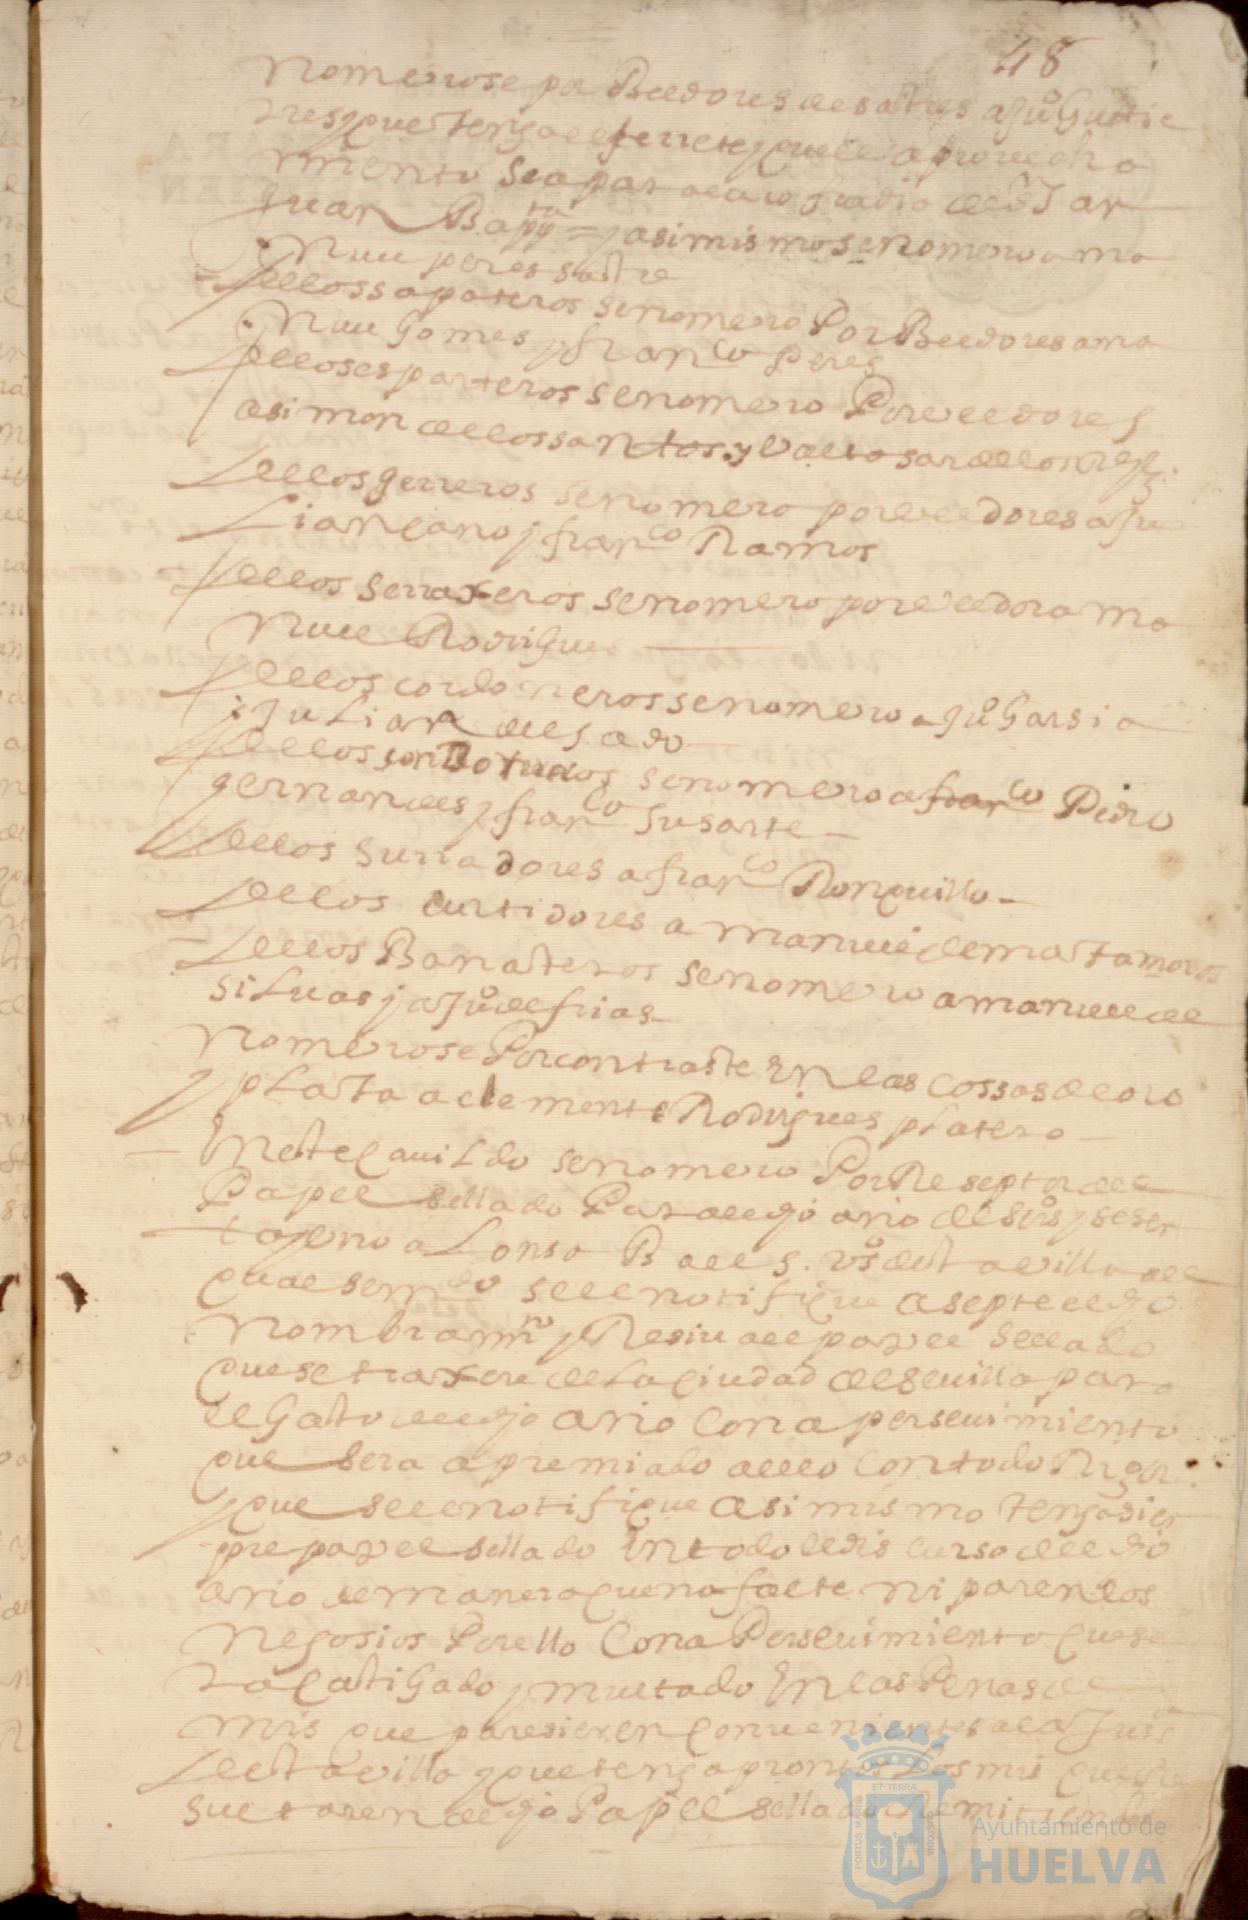 48
Nomerose por Beedores de sastres a Juº Gutie
rres que tenga el ferrete y que el aprouecha
miento sea para la cofradia de Sn
Juan Bapta = y asimismo se nomero a ma
nuel peres sastre
De los sapateros se nomero Por Beedores a ma
nuel Gomes y franco Peres
De los esparteros se nomero Por veedores
a simon de los santos y baltasar de los Reyes
De los gerreros se nomero por veedores a Juº
Liançano y franco Ramos
De los serraxeros se nomero por veedor a ma
nuel Rodrigues
De los cordoneros se nomero a Juº Garsia
y Julian delgado
De los se nomero a franco Pedro
gernandes y franco
De los surradores a franco Ronquillo
De los curtidores a manuel de matamoros
De los Banasteros se nomero a manuel de
siluar y a Juº de frias
Nomerose Por contraste En las cossas de oro
y plata a clemente Rodrigues platero
En este cauildo se nomero Por Reseptor del
Papel sellado Para el dho año de seisos y seser
ta y uno a Lonso Baes vsº desta villa al
qual se mdo se le notifique asepte el dho
nombramto y Resiua el papel sellado
que se traxere de la çiudad de seuilla para
el Gasto del dho año Con apersevimiento
que sera apremiado a ello Con todo Rigor
y que se le notifique asimismo tenga sien
pre papel sellado En todo el discurso del dho
año de manera que no falte ni paren los
negosios Por ello Con a Persevimiento que se
ra Castigado y multado En las Penas de
mrs que paresieren Conuenientes a la Jussa
desta villa y que tenga prontos Los mrs que Re
sultaren del dho Papel sellado Remitiendo
ET TERRÆ
PORTUS MARIS
CUSTODIA
Ayuntamiento de
HUELVA